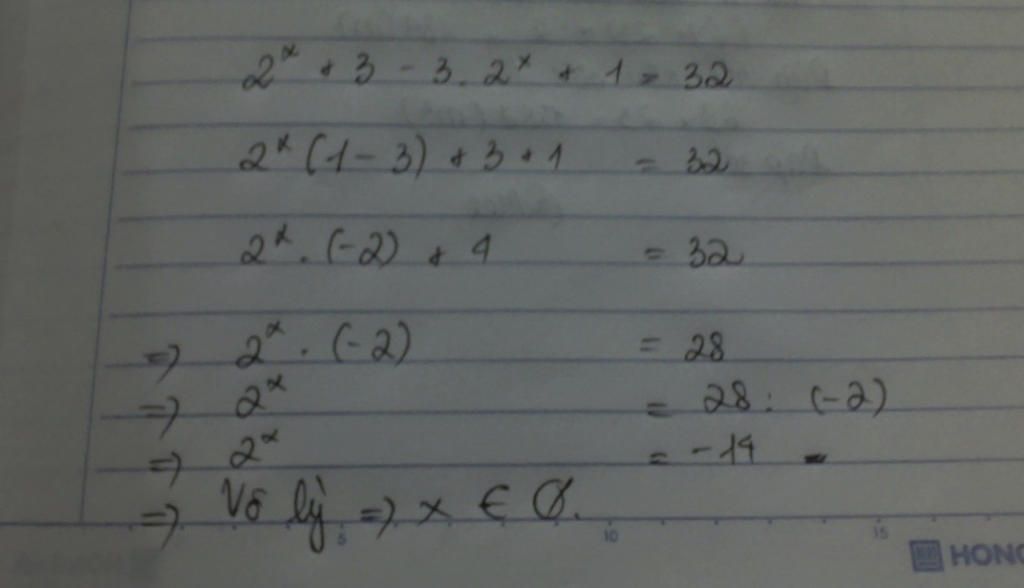 2ˣ + 3 - 3. 2ˣ + 1 = 32
2ˣ (1 - 3) + 3 + 1 = 32
2ˣ . (-2) + 4 = 32
=> 2ˣ . (-2) = 28
=> 2ˣ = 28 : (-2)
=> 2ˣ = -14
=> Vô lý => x ∈ Ø.
5 10 15
HONG